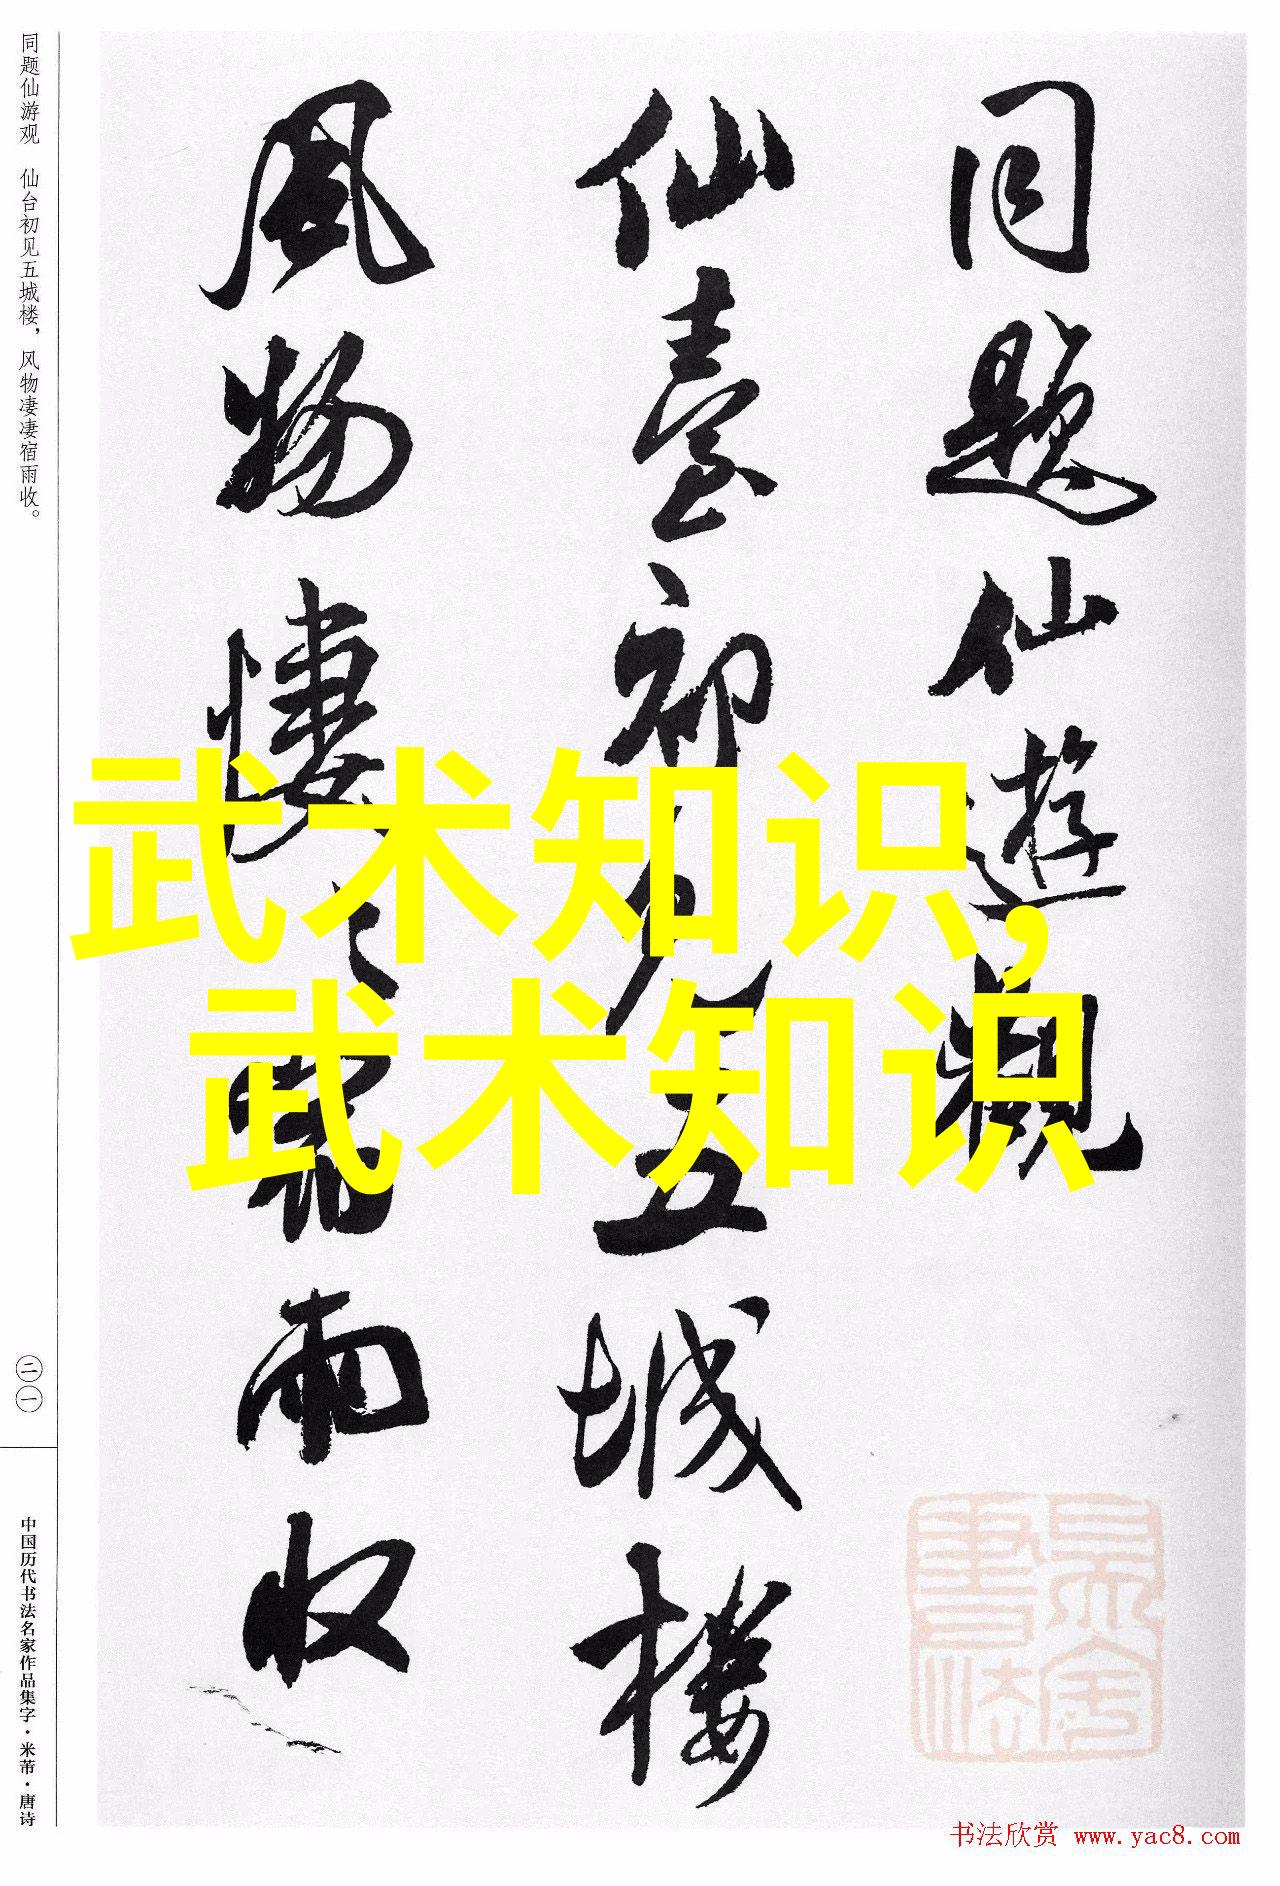 同题仙游观 仙台初见五城楼，风物凄凄宿雨收。
二一
中国历代书法名家作品集字·米芾·唐诗
同題仙遊觀
仙臺初見五城樓
風物悽〻宿雨收
武术知识,
武术知识
书法欣赏 www.yac8.com